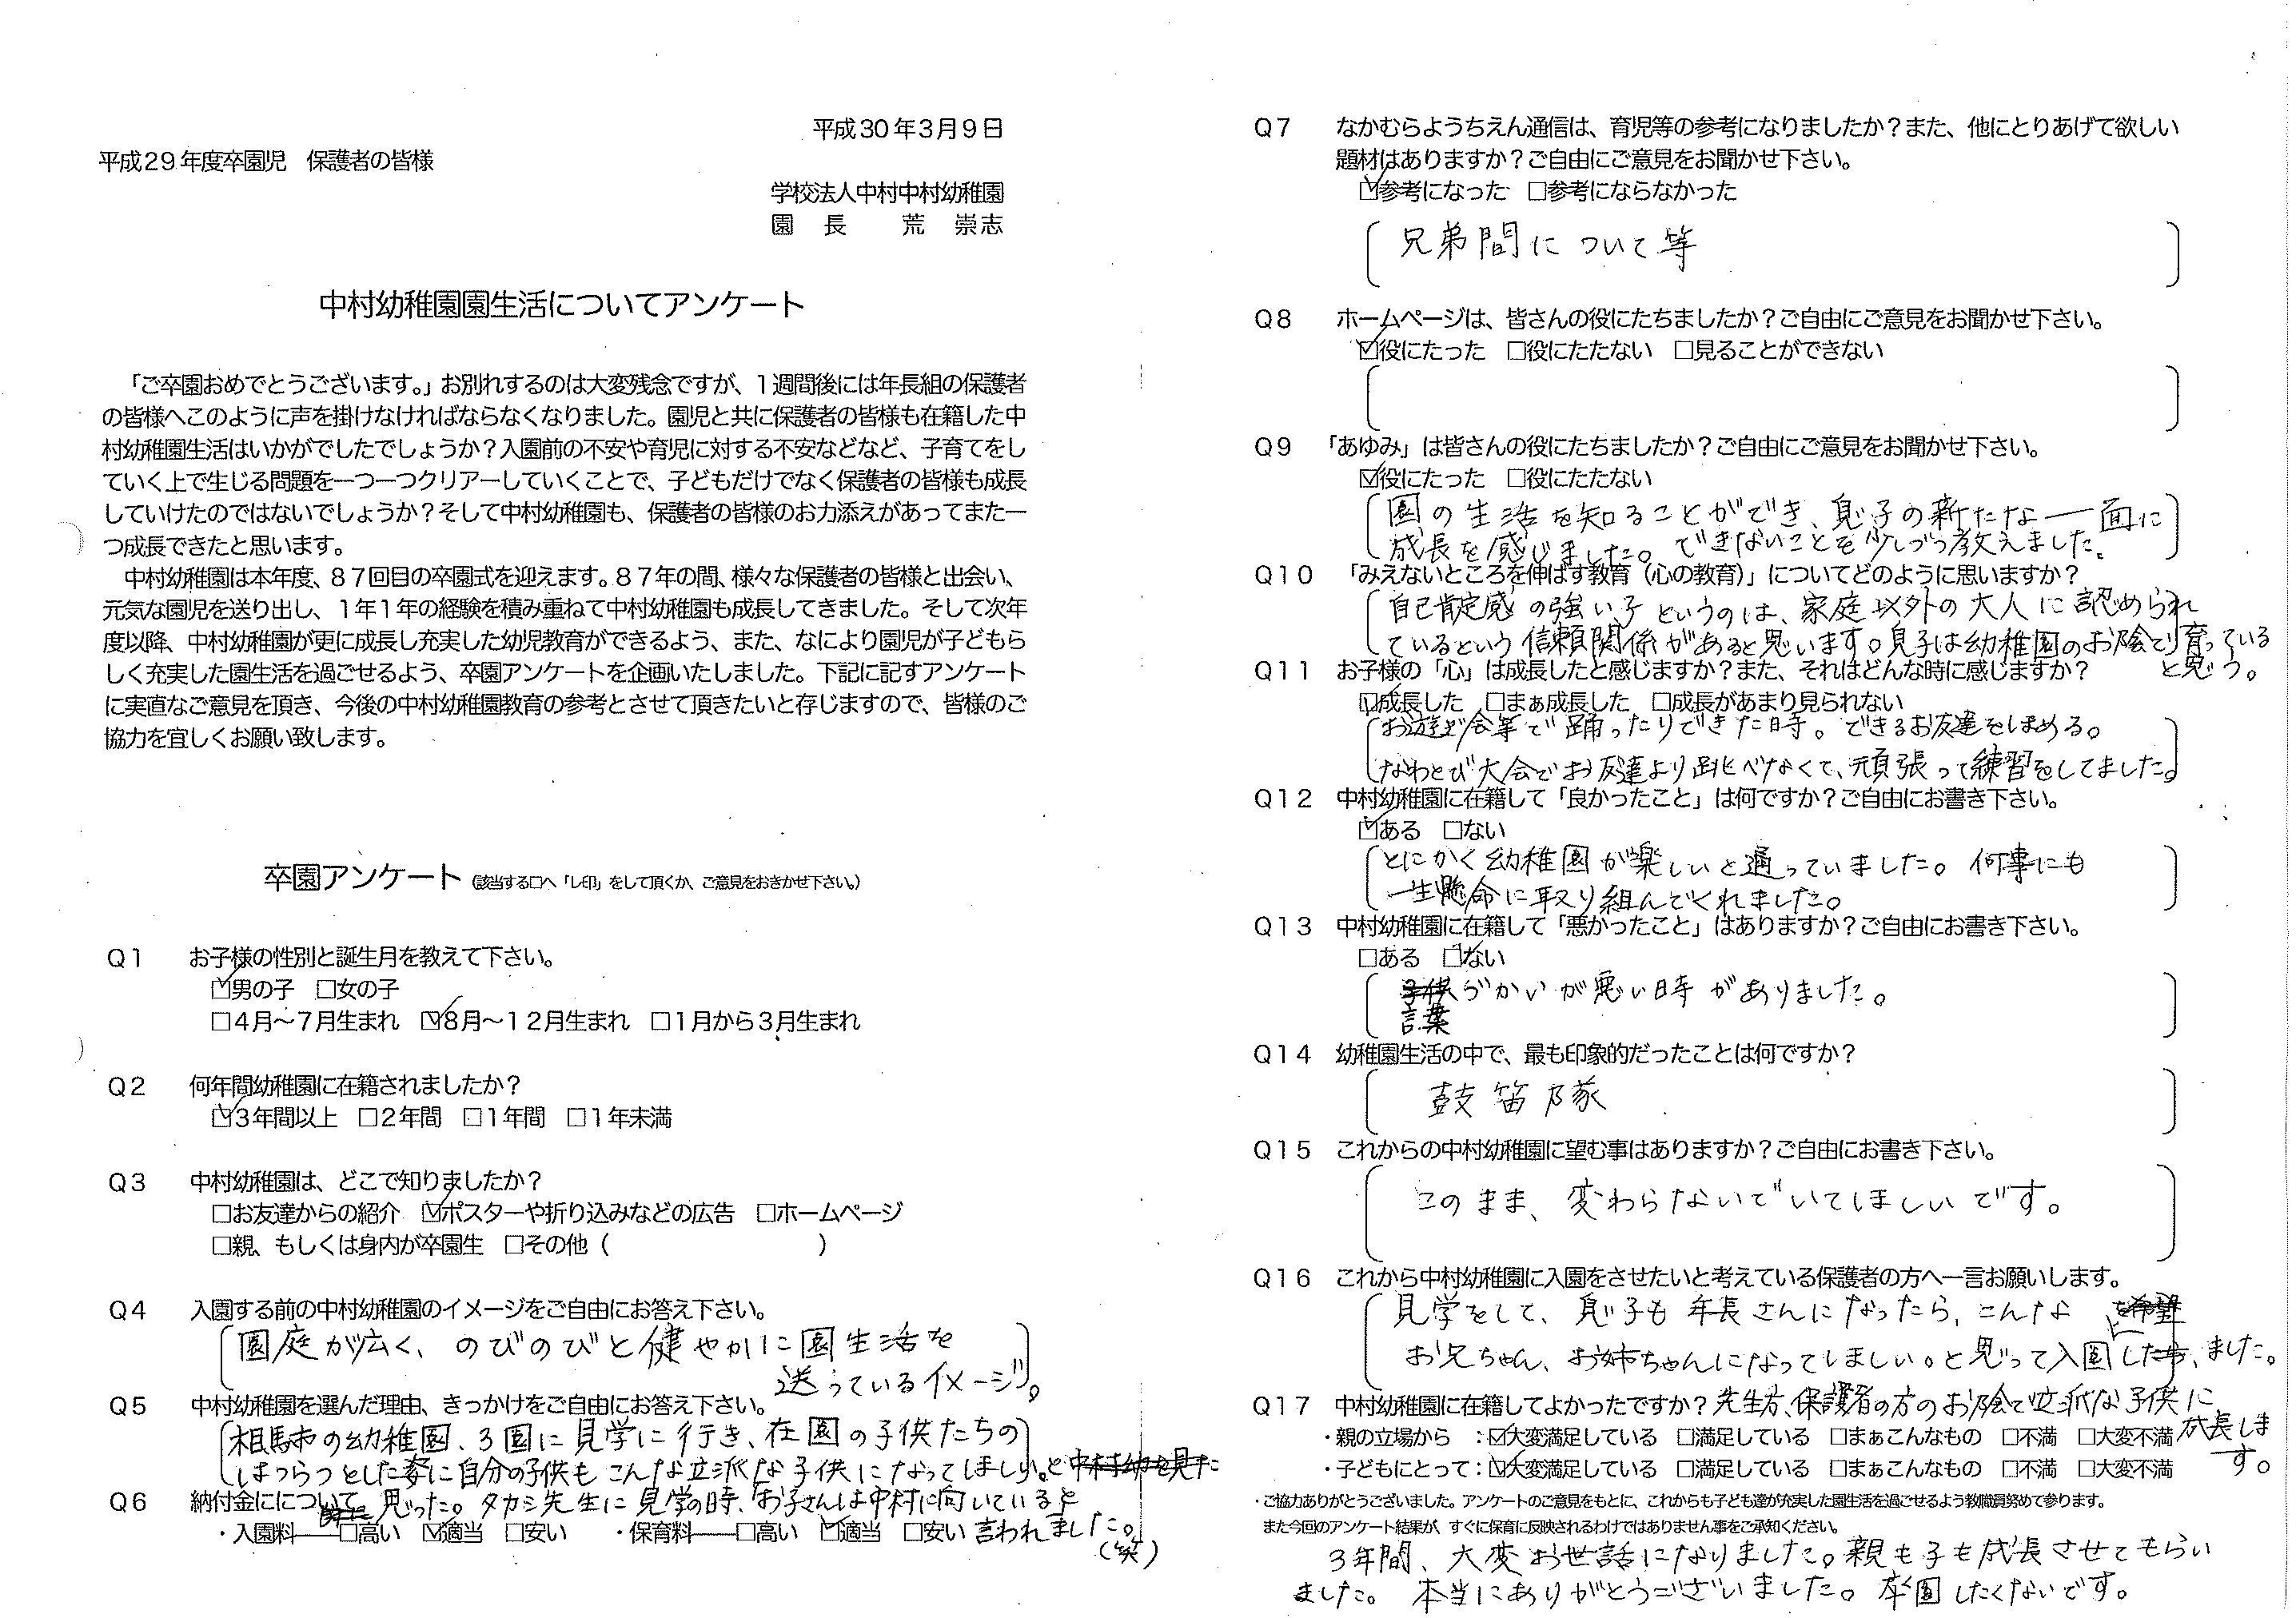 平成30年3月9日
平成29年度卒園児　保護者の皆様
学校法人中村中村幼稚園
園　長　　荒　崇志
中村幼稚園園生活についてアンケート
「ご卒園おめでとうございます。」お別れするのは大変残念ですが、1週間後には年長組の保護者
の皆様へこのように声を掛けなければならなくなりました。園児と共に保護者の皆様も在籍した中
村幼稚園生活はいかがでしたでしょうか？入園前の不安や育児に対する不安などなど、子育てをし
ていく上で生じる問題を一つ一つクリアーしていくことで、子どもだけでなく保護者の皆様も成長
していけたのではないでしょうか？そして中村幼稚園も、保護者の皆様のお力添えがあってまた一
つ成長できたと思います。
中村幼稚園は本年度、87回目の卒園式を迎えます。87年の間、様々な保護者の皆様と出会い、
元気な園児を送り出し、1年1年の経験を積み重ねて中村幼稚園も成長してきました。そして次年
度以降、中村幼稚園が更に成長し充実した幼児教育ができるよう、また、なにより園児が子どもら
しく充実した園生活を過ごせるよう、卒園アンケートを企画いたしました。下記に記すアンケート
に実直なご意見を頂き、今後の中村幼稚園教育の参考とさせて頂きたいと存じますので、皆様のご
協力を宜しくお願い致します。
卒園アンケート（該当する□へ「レ印」をして頂くか、ご意見をおきかせ下さい。）
Q1　お子様の性別と誕生月を教えて下さい。
☑男の子　□女の子
□4月～7月生まれ　☑8月～12月生まれ　□1月から3月生まれ
Q2　何年間幼稚園に在籍されましたか？
☑3年間以上　□2年間　□1年間　□1年未満
Q3　中村幼稚園は、どこで知りましたか？
□お友達からの紹介　☑ポスターや折り込みなどの広告　□ホームページ
□親、もしくは身内が卒園生　□その他（　　　　　　　　　　）
Q4　入園する前の中村幼稚園のイメージをご自由にお答え下さい。
園庭が広く、のびのびと健やかに園生活を
送っているイメージ。
Q5　中村幼稚園を選んだ理由、きっかけをご自由にお答え下さい。
相馬市の幼稚園、3園に見学に行き、在園の子供たちの
はつらつとした姿に自分の子供もこんな立派な子供になってほしい。と中村幼を見た
Q6　納付金にについて 思った。タカシ先生に見学の時、お子さんは中村に向いていると
・入園料――□高い　☑適当　□安い　・保育料――□高い　☑適当　□安い 言われました。
（笑）
Q7　なかむらようちえん通信は、育児等の参考になりましたか？また、他にとりあげて欲しい
題材はありますか？ご自由にご意見をお聞かせ下さい。
☑参考になった　□参考にならなかった
兄弟間について等
Q8　ホームページは、皆さんの役にたちましたか？ご自由にご意見をお聞かせ下さい。
☑役にたった　□役にたたない　□見ることができない
Q9　「あゆみ」は皆さんの役にたちましたか？ご自由にご意見をお聞かせ下さい。
☑役にたった　□役にたたない
園の生活を知ることができ、息子の新たな一面に
成長を感じました。できないことを少しづつ教えました。
Q10　「みえないところを伸ばす教育（心の教育）」についてどのように思いますか？
自己肯定感の強い子というのは、家庭以外の大人に認められ
ているという信頼関係があると思います。息子は幼稚園のお陰と育っている
と思う。
Q11　お子様の「心」は成長したと感じますか？また、それはどんな時に感じますか？
☑成長した　□まぁ成長した　□成長があまり見られない
お遊ぎ会等で踊ったりできた時。できるお友達をほめる。
なわとび大会でお友達より跳べなくて、頑張って練習をしてました。
Q12　中村幼稚園に在籍して「良かったこと」は何ですか？ご自由にお書き下さい。
☑ある　□ない
とにかく幼稚園が楽しいと通っていました。何事にも
一生懸命に取り組んでくれました。
Q13　中村幼稚園に在籍して「悪かったこと」はありますか？ご自由にお書き下さい。
□ある　☑ない
子供づかいが悪い時がありました。
言葉
Q14　幼稚園生活の中で、最も印象的だったことは何ですか？
鼓笛隊
Q15　これからの中村幼稚園に望む事はありますか？ご自由にお書き下さい。
このまま、変わらないでいてほしいです。
Q16　これから中村幼稚園に入園をさせたいと考えている保護者の方へ一言お願いします。
見学をして、息子も年長さんになったら、こんな を希望
お兄ちゃん、お姉ちゃんになってほしい。と思って入園しました。
Q17　中村幼稚園に在籍してよかったですか？ 先生方、保護者の方のお陰で立派な子供に
・親の立場から　：☑大変満足している　□満足している　□まぁこんなもの　□不満　□大変不満 成長しま
・子どもにとって：☑大変満足している　□満足している　□まぁこんなもの　□不満　□大変不満 す。
・ご協力ありがとうございました。アンケートのご意見をもとに、これからも子ども達が充実した園生活を過ごせるよう教職員努めて参ります。
また今回のアンケート結果が、すぐに保育に反映されるわけではありません事をご承知ください。
3年間、大変お世話になりました。親も子も成長させてもらい
ました。本当にありがとうございました。卒園したくないです。